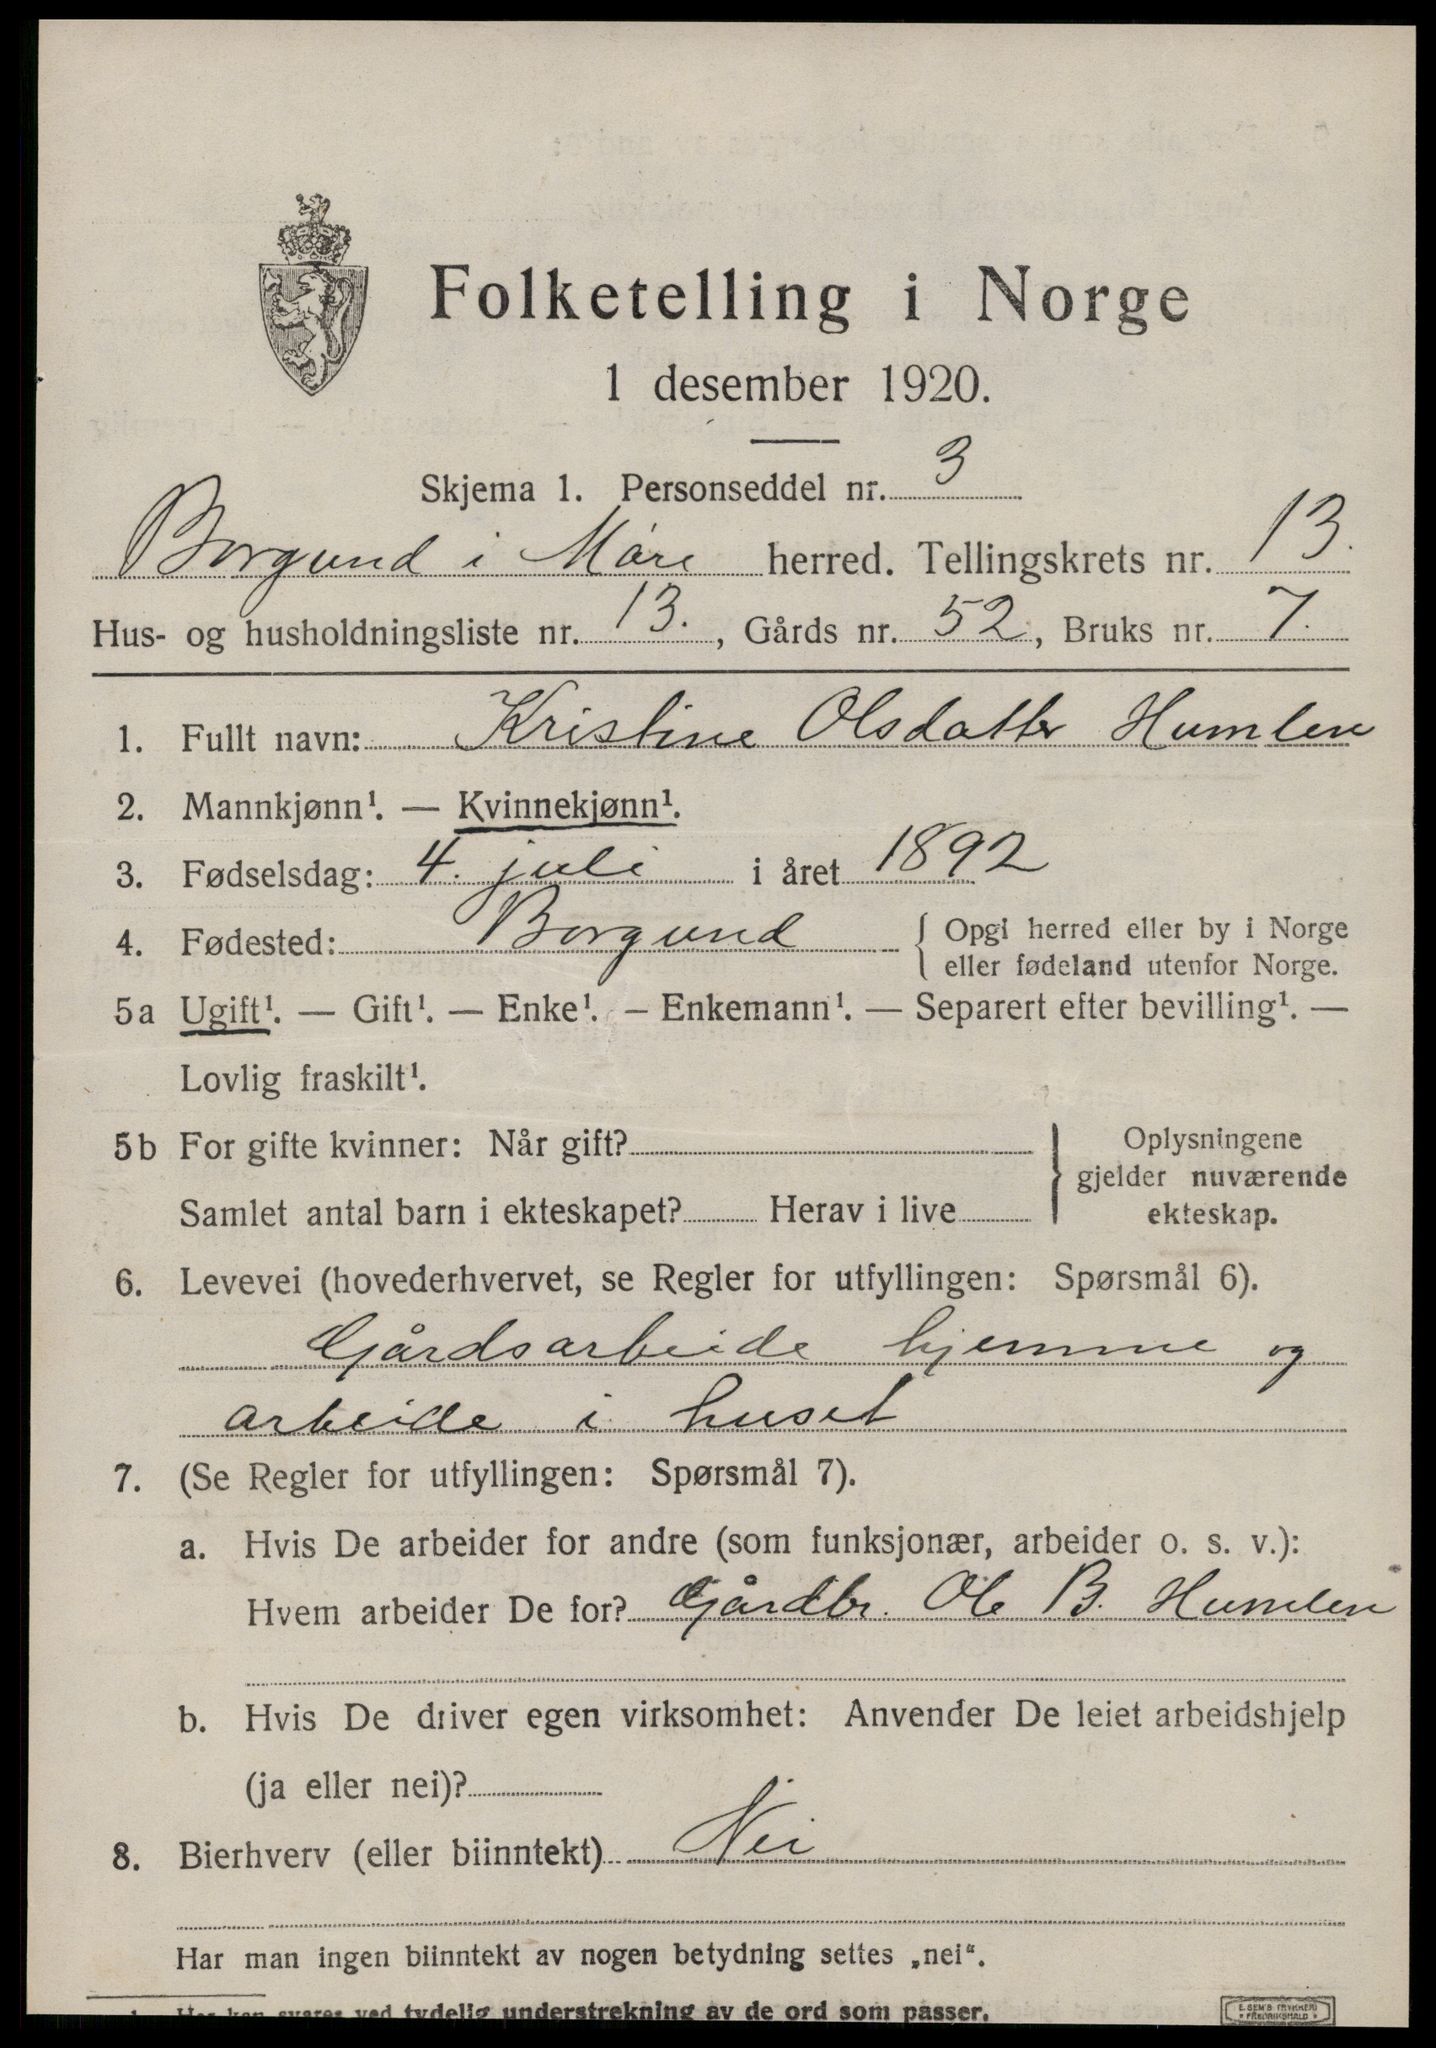 Folketelling i Norge
1 desember 1920.
Skjema 1. Personseddel nr. 3
Borgund i Møre herred. Tellingskrets nr. 13.
Hus- og husholdningsliste nr. 13., Gårds nr. 52, Bruks nr. 7.
1. Fullt navn: Kristine Olsdatter Humlen
2. Mannkjønn¹. — Kvinnekjønn¹.
3. Fødselsdag: 4. juli i året 1892
4. Fødested: Borgund { Opgi herred eller by i Norge
eller fødeland utenfor Norge.
5a Ugift¹. — Gift¹. — Enke¹. – Enkemann¹. — Separert efter bevilling¹. —
Lovlig fraskilt¹.
5b For gifte kvinner: Når gift? } Oplysningene
gjelder nuværende
Samlet antal barn i ekteskapet? Herav i live ekteskap.
6. Levevei (hovederhvervet, se Regler for utfyllingen: Spørsmål 6).
Gårdsarbeide hjemme og
arbeide i huset
7. (Se Regler for utfyllingen: Spørsmål 7).
a. Hvis De arbeider for andre (som funksjonær, arbeider o. s. v.):
Hvem arbeider De for? Gårdbr. Ole B. Humlen
b. Hvis De driver egen virksomhet: Anvender De leiet arbeidshjelp
(ja eller nei)?
8. Bierhverv (eller biinntekt) Nei
Har man ingen biinntekt av nogen betydning settes „nei“.
1. Her kan svares ved tydelig understrekning av de ord som passer.
E. SEM'S TRYKKERI
FREDRIKSHALD